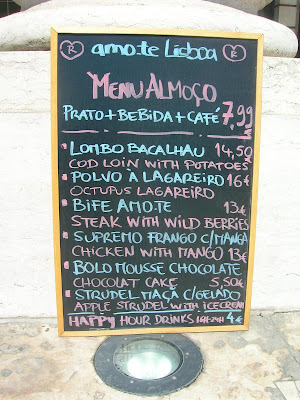 R amo.te Lisboa R
MENU ALMOÇO
PRATO + BEBIDA + CAFÉ 7,99
LOMBO BACALHAU 14,50
COD LOIN WITH POTATOES
POLVO À LAGAREIRO 16€
OCTUPUS LAGAREIRO
BIFE AMO.TE 13€
STEAK WITH WILD BERRIES
SUPREMO FRANGO C/MANGA
CHICKEN WITH MANGO 13€
BOLO MOUSSE CHOCOLATE
CHOCOLAT CAKE 5,50€
STRUDEL MAÇÃ C/GELADO
APPLE STRUDEL WITH ICECREAM
HAPPY HOUR DRINKS 4€